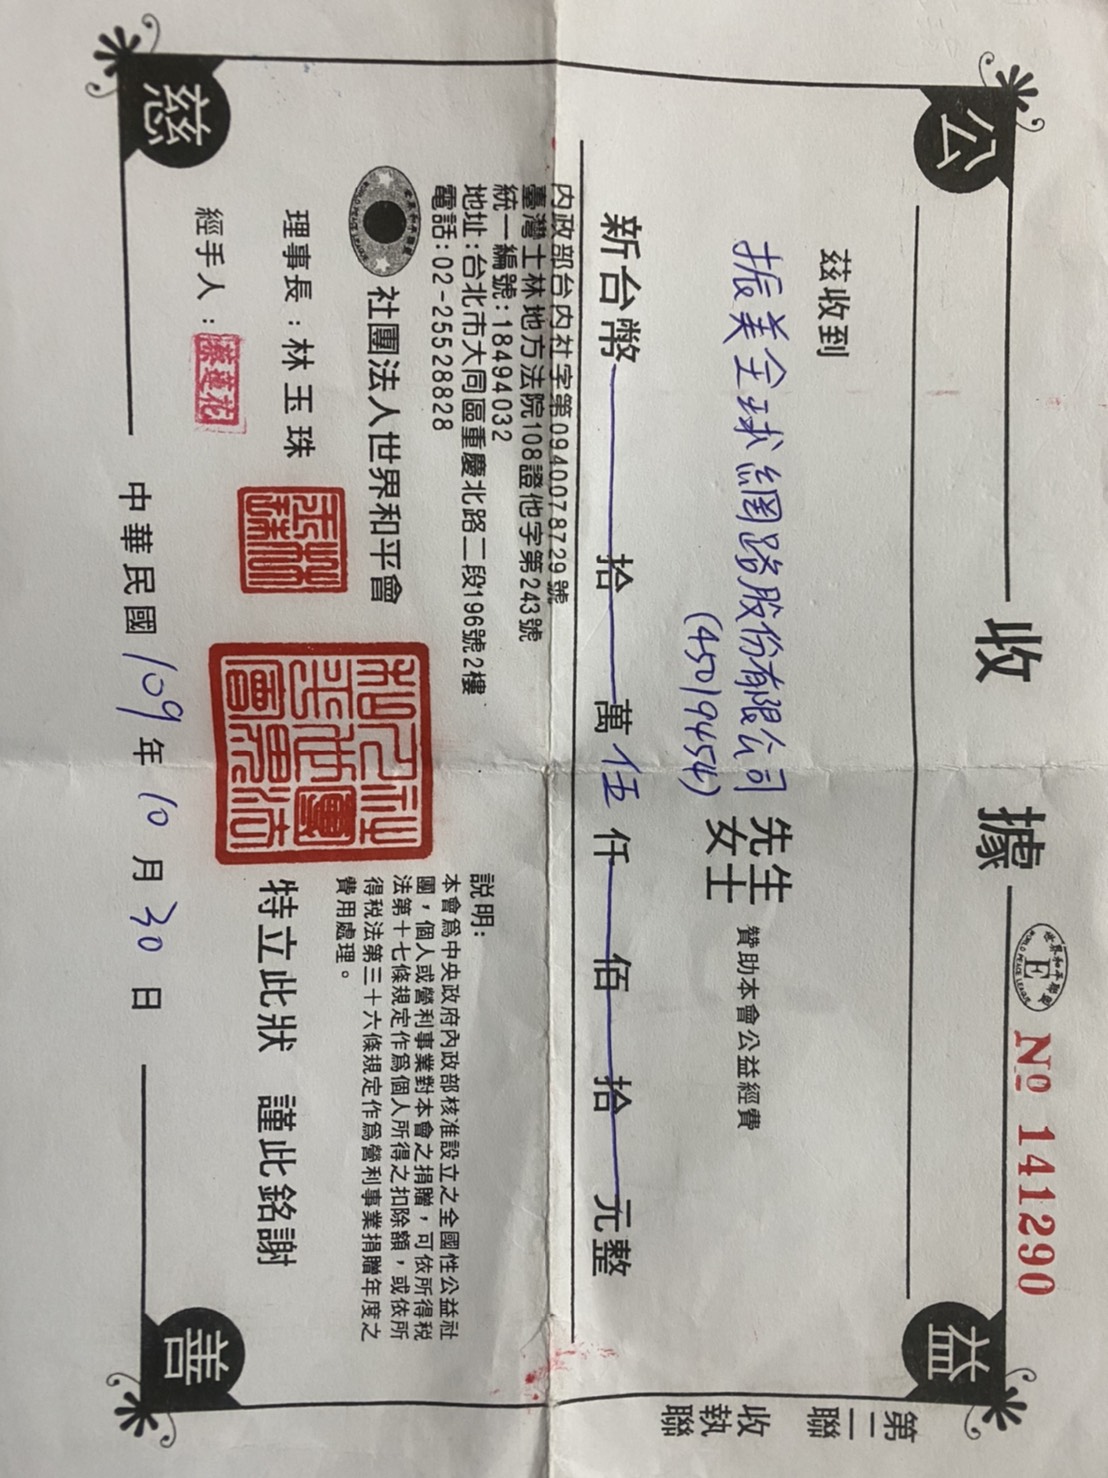 收據
世界和平聯盟
E
WORLD PEACE LEAGUE
№ 141290
公
益
茲收到
振美全球網路股份有限公司
(45019454)
先生
女士
贊助本會公益經費
新台幣 拾 萬 伍 仟 佰 拾 元整
第二聯 收執聯
內政部台內社字第0940078729號
臺灣士林地方法院108證他字第243號
統一編號:18494032
地址:台北市大同區重慶北路二段196號2樓
電話:02-25528828
世界和平聯盟
WORLD PEACE LEAGUE
社團法人世界和平會
理事長:林玉珠
林玉珠
經手人:蔡蓮花
社團法人世界和平會
說明:
本會為中央政府內政部核准設立之全國性公益社
團,個人或營利事業對本會之捐贈,可依所得稅
法第十七條規定作為個人所得之扣除額,或依所
得稅法第三十六條規定作為營利事業捐贈年度之
費用處理。
特立此狀 謹此銘謝
慈
善
中華民國 109 年 10 月 30 日